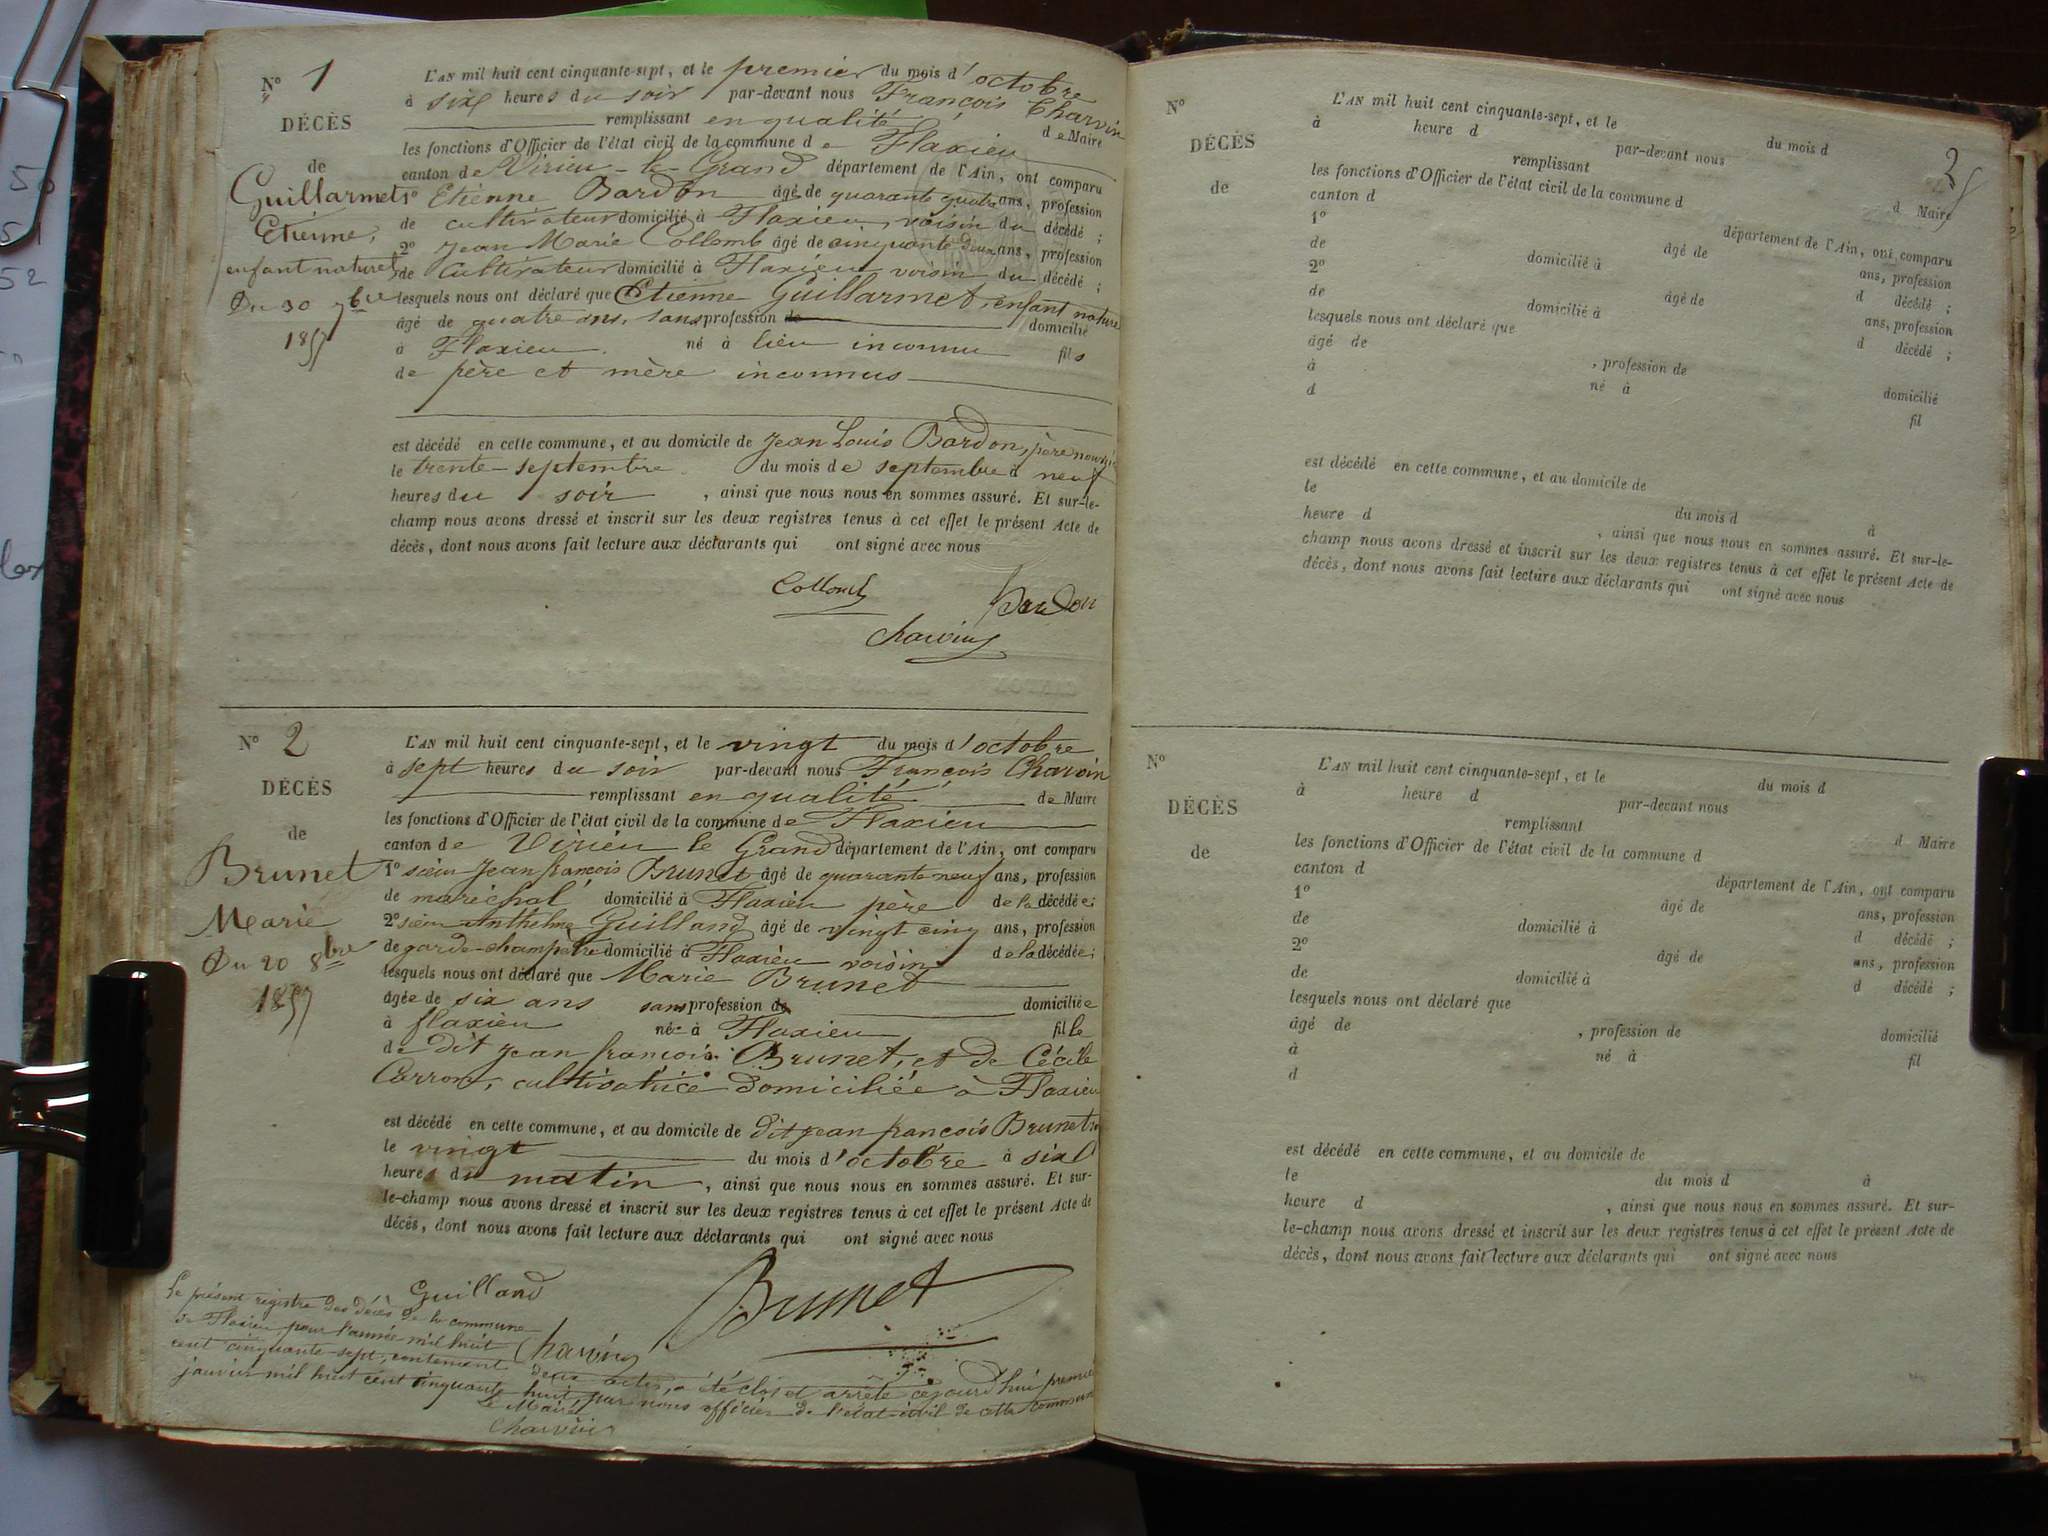 N° 1
DÉCÈS
de
Guillarmet
Etienne,
enfant naturel
Du 30 7bre
1857
L'AN mil huit cent cinquante-sept, et le premier du mois d'octobre
à six heures du soir par-devant nous François Charvin
remplissant en qualité de Maire
les fonctions d'Officier de l'état civil de la commune de Flaxieu
canton de Virieu-le-Grand département de l'Ain, ont comparu
1° Etienne Bardon âgé de quarante quatre ans, profession
de cultivateur domicilié à Flaxieu, voisin du décédé ;
2° Jean Marie Collomb âgé de cinquante deux ans, profession
de cultivateur domicilié à Flaxieu voisin du décédé ;
lesquels nous ont déclaré que Etienne Guillarmet, enfant naturel
âgé de quatre ans, sans profession de domicilié
à Flaxieu. né à lieu inconnu fils
de père et mère inconnus
est décédé en cette commune, et au domicile de Jean Louis Bardon, père
le trente septembre du mois de septembre à neuf
heures du soir, ainsi que nous nous en sommes assuré. Et sur-le-
champ nous avons dressé et inscrit sur les deux registres tenus à cet effet le présent Acte de
décès, dont nous avons fait lecture aux déclarants qui ont signé avec nous
Collomb Bardon
Charvin
N° 2
DÉCÈS
de
Brunet
Marie
Du 20 8bre
1857
L'AN mil huit cent cinquante-sept, et le vingt du mois d'octobre
à sept heures du soir par-devant nous François Charvin
remplissant en qualité de Maire
les fonctions d'Officier de l'état civil de la commune de Flaxieu
canton de Virieu le Grand département de l'Ain, ont comparu
1° sieur Jean françois Brunet âgé de quarante neuf ans, profession
de maréchal domicilié à Flaxieu père de la décédée ;
2° sieur Anthelme Guilland âgé de vingt cinq ans, profession
de garde-champêtre domicilié à Flaxieu voisin de la décédée ;
lesquels nous ont déclaré que Marie Brunet
âgée de six ans sans profession de domiciliée
à flaxieu née à Flaxieu fille
de dit Jean françois Brunet, et de Cécile
Carron, cultivatrice domiciliée à Flaxieu
est décédé en cette commune, et au domicile de dit jean françois Brunet
le vingt du mois d'octobre à six
heures du matin, ainsi que nous nous en sommes assuré. Et sur-
le-champ nous avons dressé et inscrit sur les deux registres tenus à cet effet le présent Acte de
décès, dont nous avons fait lecture aux déclarants qui ont signé avec nous
Guilland Brunet
Charvin
Le présent registre des décès de la commune
de Flaxieu pour l'année mil huit
cent cinquante-sept, contenant deux actes, a été clos et arrêté cejourd'hui premier
janvier mil huit cent cinquante huit, par nous officier de l'état-civil de cette commune
Le Maire
Charvin
N°
DÉCÈS
de
L'AN mil huit cent cinquante-sept, et le du mois d
à heure d par-devant nous
remplissant d Maire
les fonctions d'Officier de l'état civil de la commune d
canton d département de l'Ain, ont comparu
1° âgé de ans, profession
de domicilié à d décédé ;
2° âgé de ans, profession
de domicilié à d décédé ;
lesquels nous ont déclaré que
âgé de , profession de domicilié
à né à fil
d
est décédé en cette commune, et au domicile de
le du mois d à
heure d , ainsi que nous nous en sommes assuré. Et sur-le-
champ nous avons dressé et inscrit sur les deux registres tenus à cet effet le présent Acte de
décès, dont nous avons fait lecture aux déclarants qui ont signé avec nous
N°
DÉCÈS
de
L'AN mil huit cent cinquante-sept, et le du mois d
à heure d par-devant nous
remplissant d Maire
les fonctions d'Officier de l'état civil de la commune d
canton d département de l'Ain, ont comparu
1° âgé de ans, profession
de domicilié à d décédé ;
2° âgé de ans, profession
de domicilié à d décédé ;
lesquels nous ont déclaré que
âgé de , profession de domicilié
à né à fil
d
est décédé en cette commune, et au domicile de
le du mois d à
heure d , ainsi que nous nous en sommes assuré. Et sur-
le-champ nous avons dressé et inscrit sur les deux registres tenus à cet effet le présent Acte de
décès, dont nous avons fait lecture aux déclarants qui ont signé avec nous